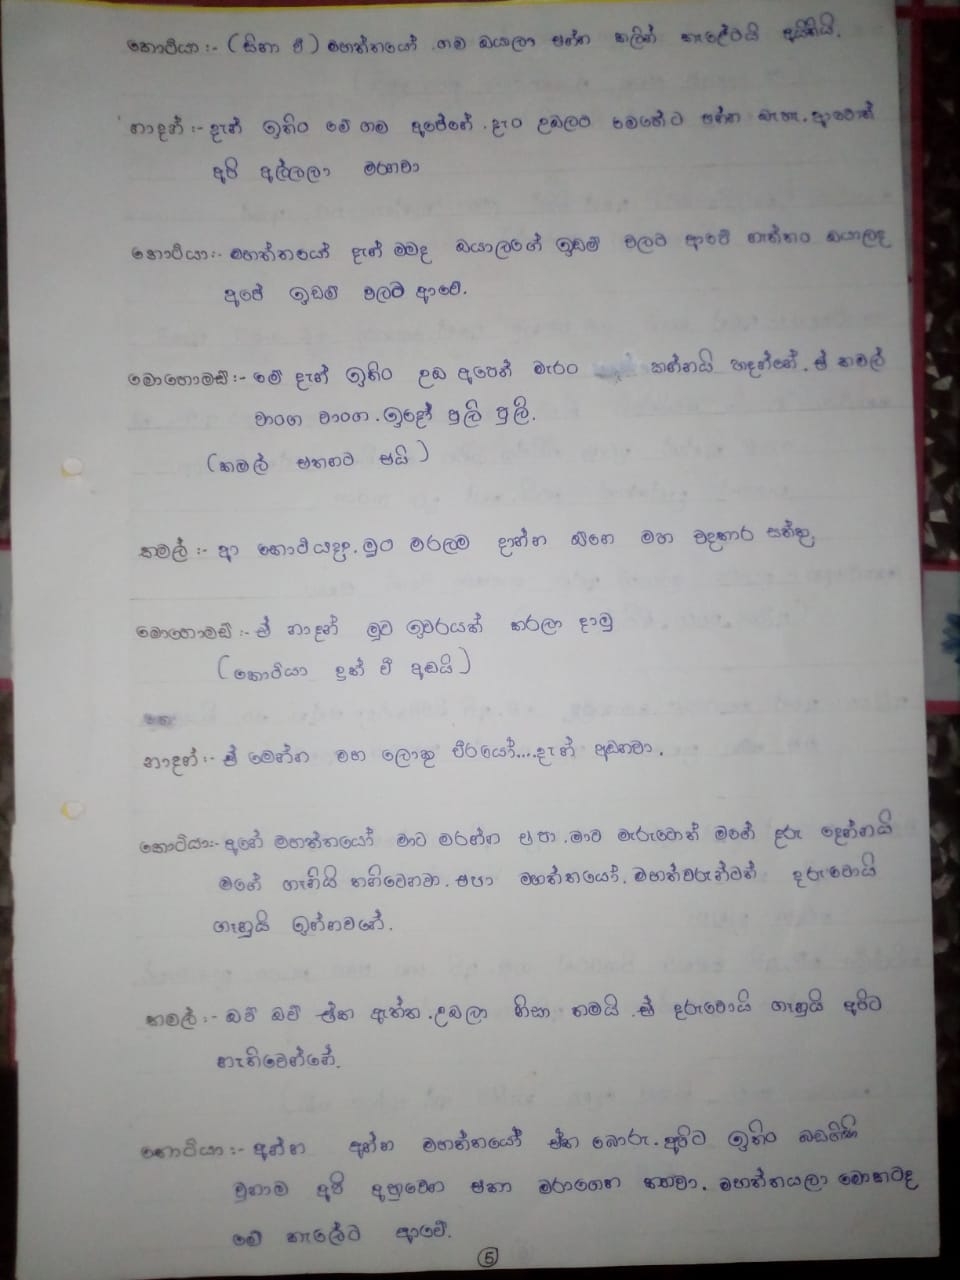 කොටියා :- (සිනා වී) මහත්තයෝ ගම ඔයාලා එන්න කලින් කැලේටයි අයිතියි.
නාදන් :- දැන් ඉතිං මේ ගම අපේනේ. දැං උඹලට මෙහේට එන්න බැහැ. ආවොත්
අපි අල්ලලා මරනවා
කොටියා :- මහත්තයෝ දැන් මමද ඔයාලගේ ඉඩම් වලට ආවේ නැත්තං ඔයාලද
අපේ ඉඩම් වලට ආවේ.
මොහොමඩ් :- මේ දැන් ඉතිං උඹ අපෙත් මැරං කන්නයි හදන්නේ. ඒ කමල්
වාංග වාංග. ඉදෝ පුලි පුලි.
(කමල් එතනට එයි)
කමල් :- ආ කොටියද. මූං මරලම දාන්න ඕනෙ මහ වදකාර සත්තු
මොහොමඩ් :- ඒ නාදන් මූව ඉවරයක් කරලා දාමු
(කොටියා දුක් වී අඬයි)
නාදන් :- ඒ මෙන්න මහ ලොකු වීරයෝ.... දැන් අඬනවා.
කොටියා :- අනේ මහත්තයෝ මාව මරන්න එපා. මාව මැරුවොත් මගේ දරු දෙන්නයි
මගේ ගෑනියි තනිවෙනවා. එපා මහත්තයෝ. මහත්වරුන්ටත් දරුවොයි
ගෑනුයි ඉන්නවනේ.
කමල් :- ඔව් ඔව් ඒක ඇත්ත. උඹලා නිසා තමයි ඒ දරුවොයි ගෑනුයි අපිට
නැතිවෙන්නේ.
කොටියා :- අන්න අන්න මහත්තයෝ ඒක බොරු. අපිට ඉතිං බඩගිනි
වුනාම අපි අහුවෙන එකා මරාගෙන කනවා. මහත්තයලා මොකටද
මේ කැලේට ආවේ.
5